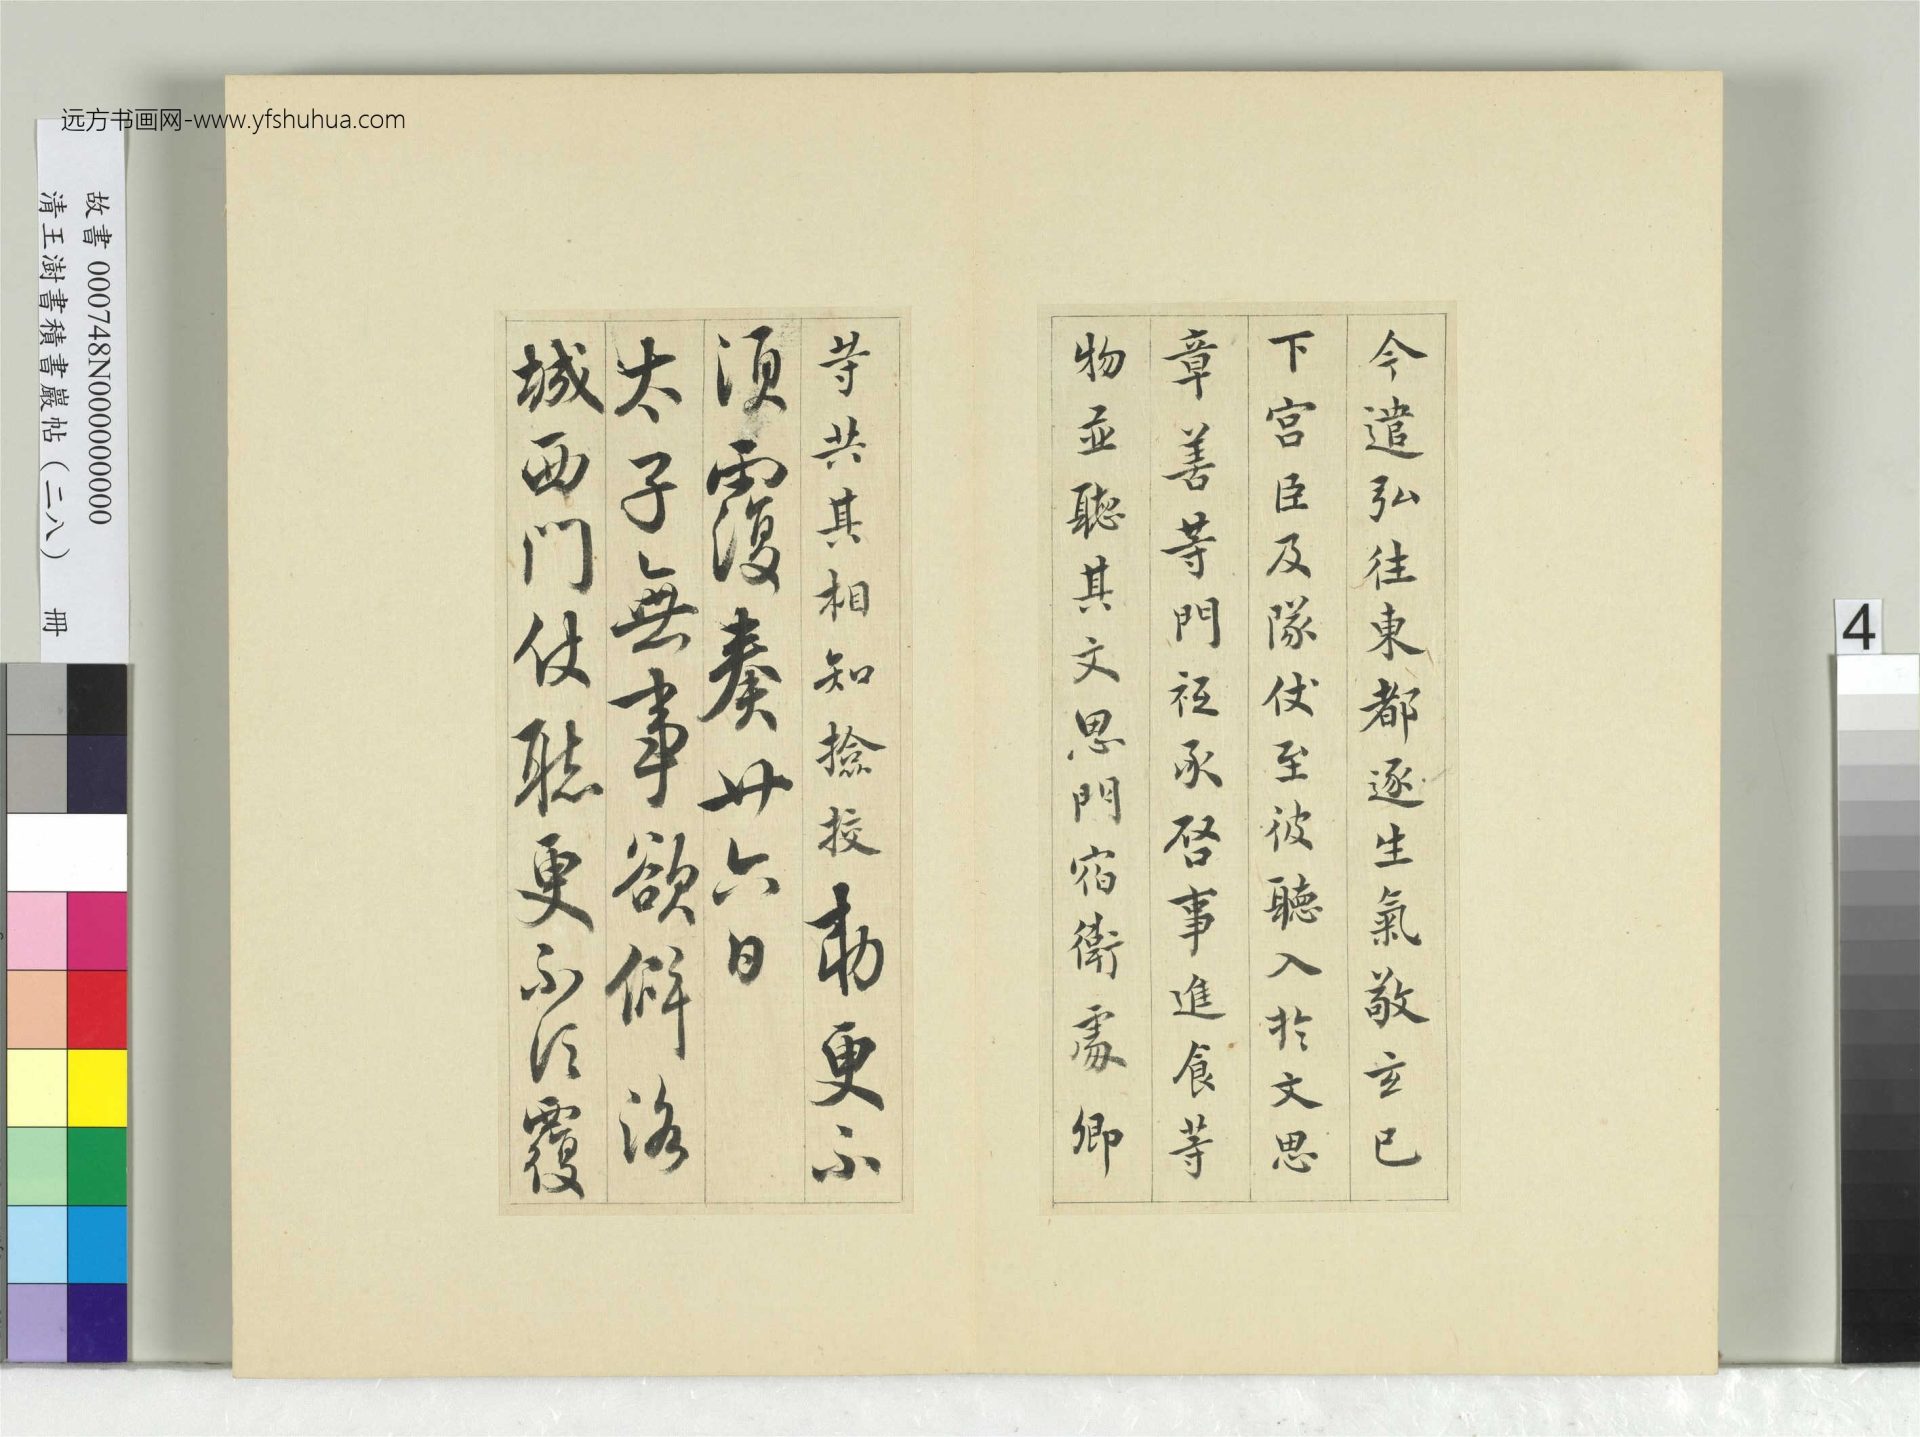 远方书画网-www.yfshuhua.com
故書 000748N000000000
清王澍書積書巖帖(二八) 冊
4
今遣弘往東都逐生氣敬玄已
下宮臣及隊仗至彼聽入於文思
章善等門祗承啓事進食等
物並聽其文思門宿衛處卿
等共其相知撿挍勅更不
須覆奏廿六日
太子無事欲僻洛
城西門仗聽更不須覆